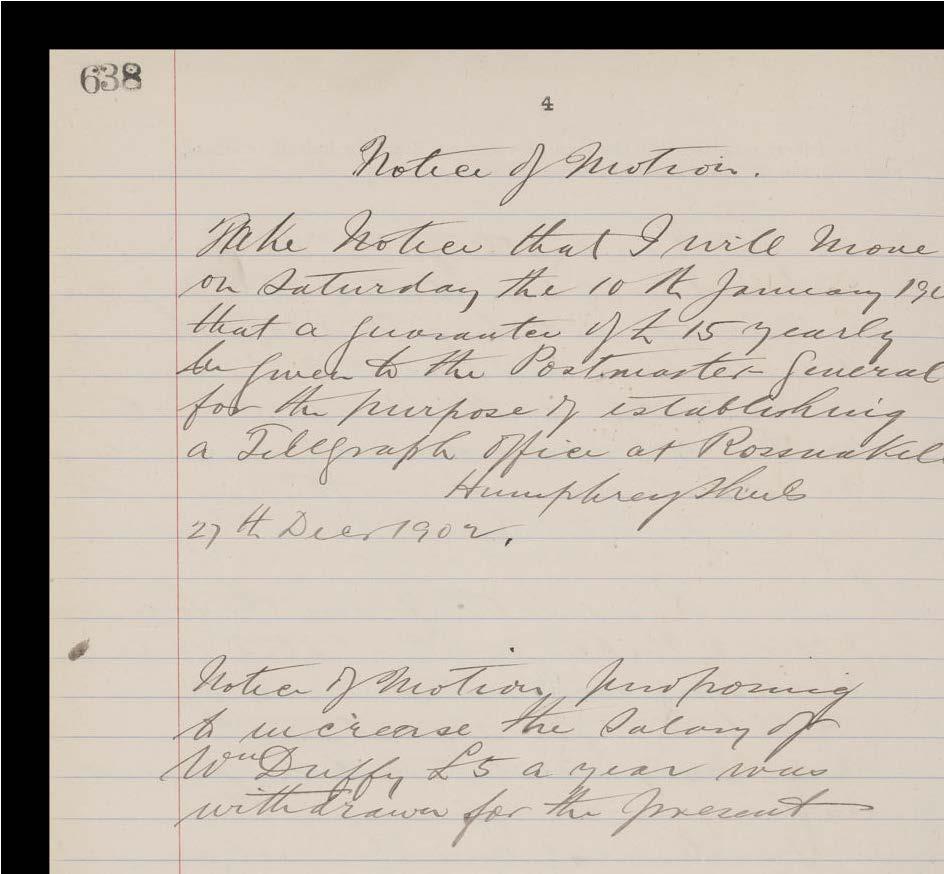 638
4
Notice of Motion.
Take Notice that I will move
on Saturday the 10th January 190
that a guarantee of £15 yearly
be given to the Postmaster General
for the purpose of establishing
a Telegraph Office at Rossnakill
Humphrey
27th Decr 1902.
Notice of Motion proposing
to increase the Salary of
Wm Duffy £5 a year was
withdrawn for the present